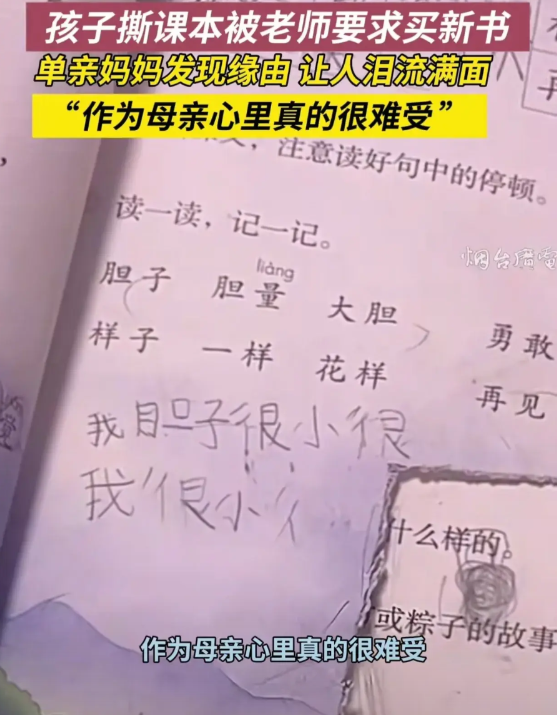 孩子撕课本被老师要求买新书
单亲妈妈发现缘由 让人泪流满面
“作为母亲心里真的很难受”
，注意读好句中的停顿。
读一读，记一记。
烟台广电
liàng
胆子 胆量 大胆 勇敢
样子 一样 花样 再见
我胆子很小很
我很小
什么样的。
或粽子的故事
作为母亲心里真的很难受